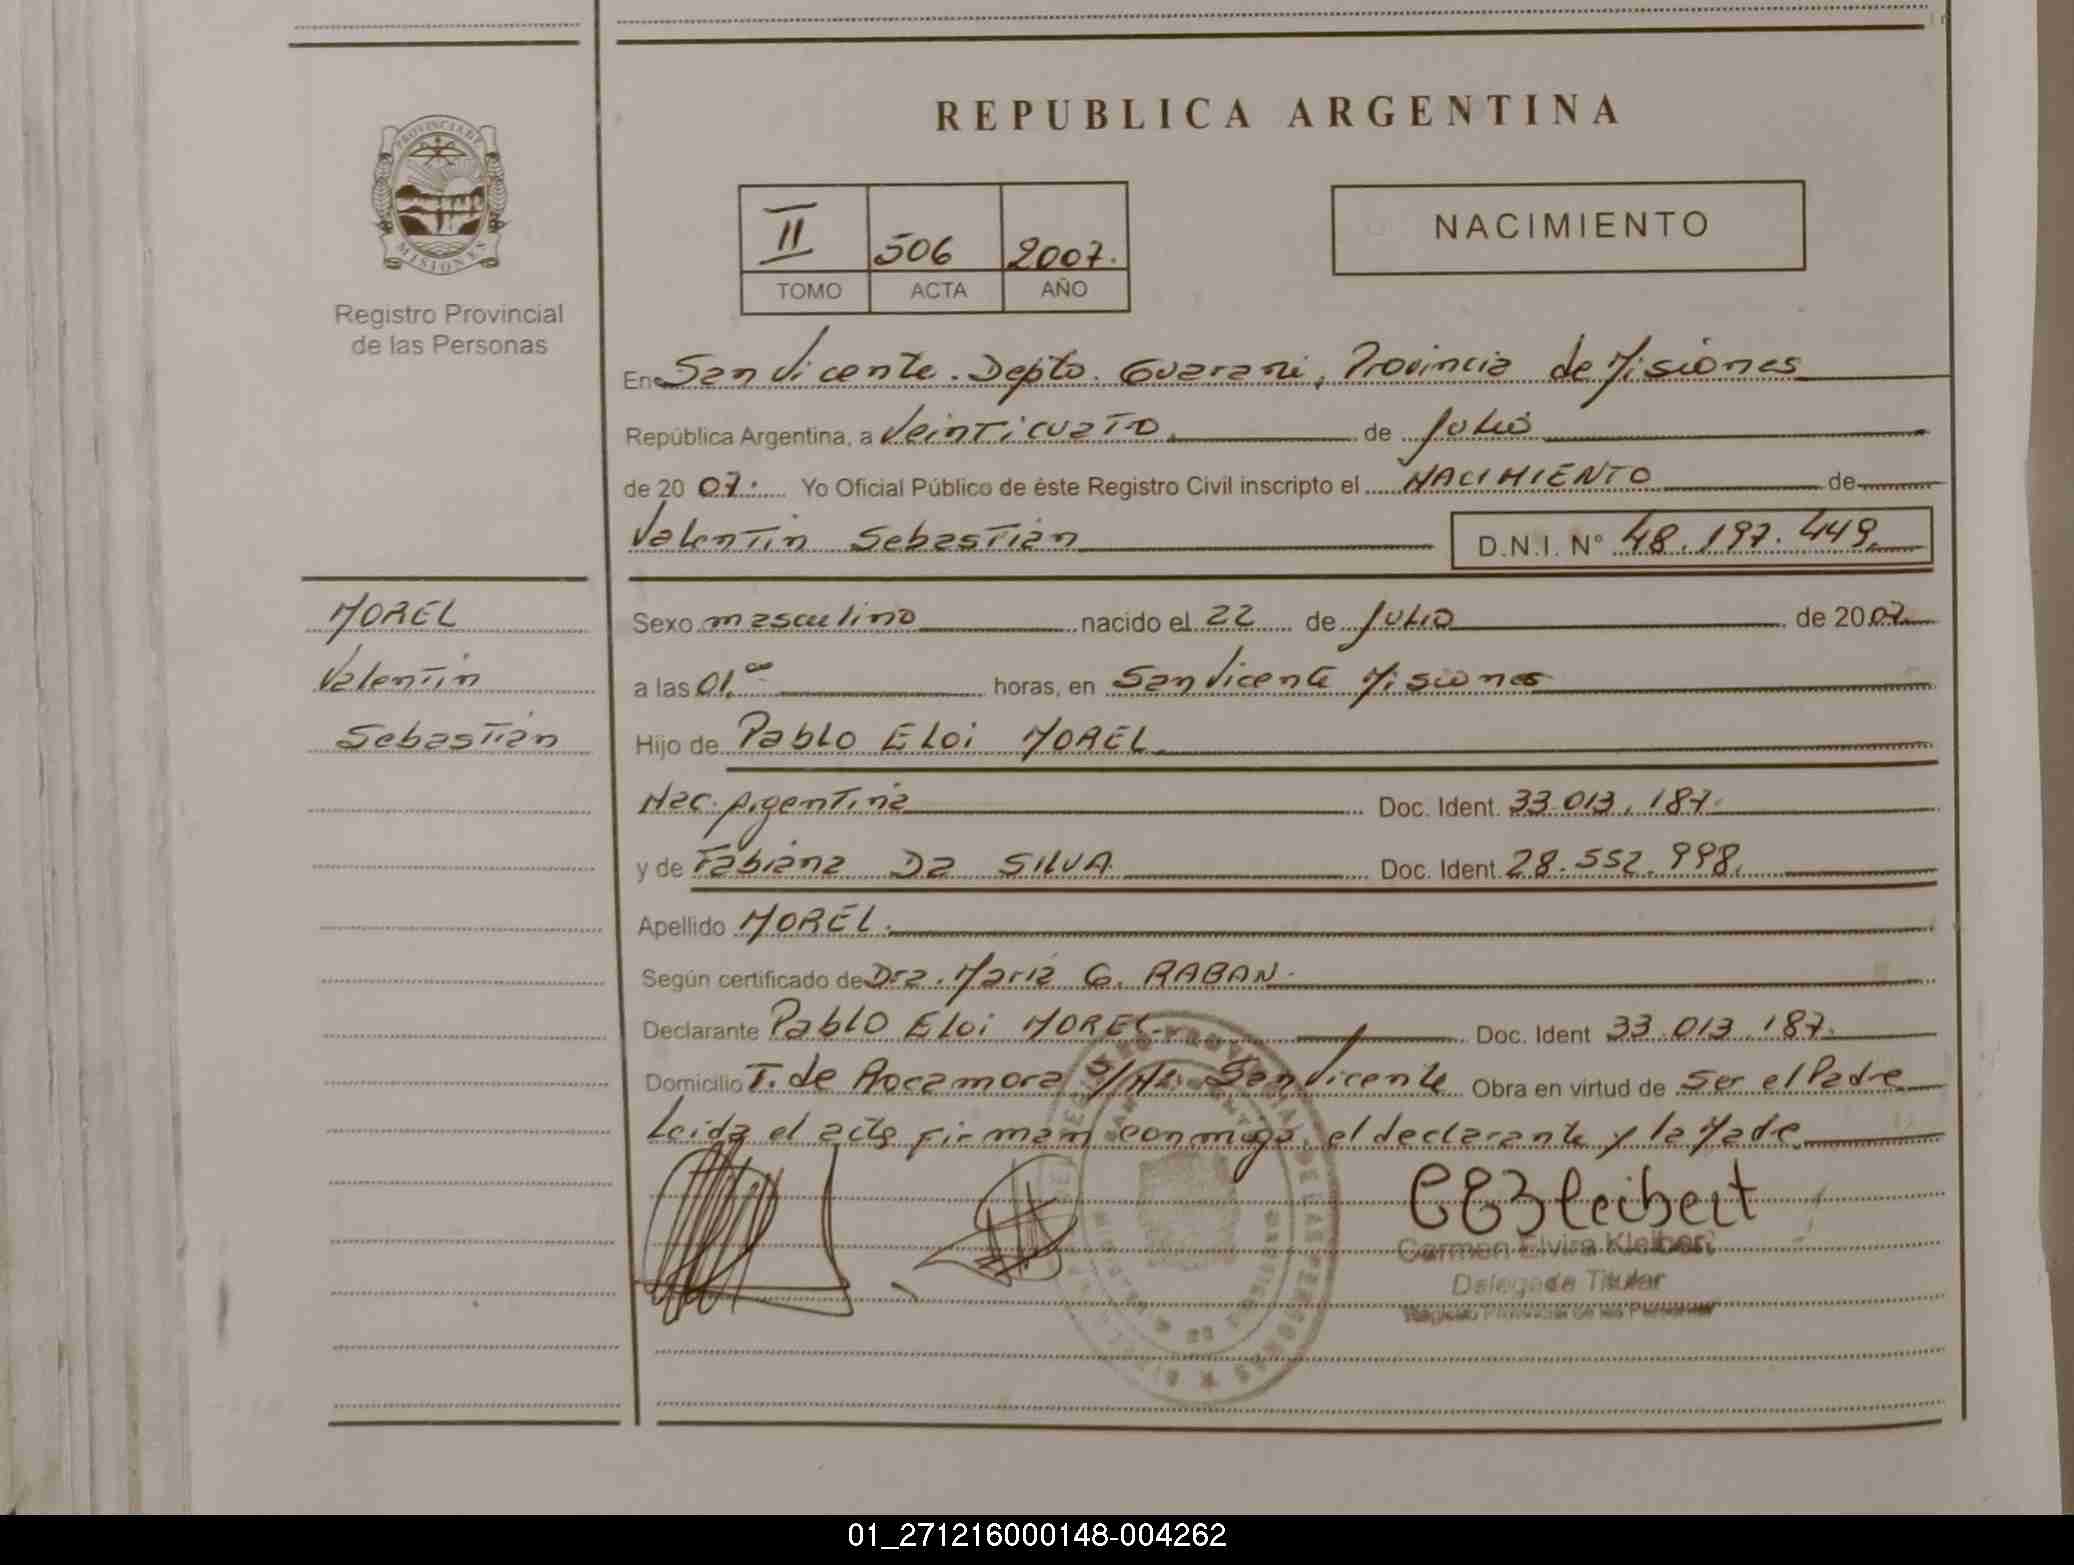 REPUBLICA ARGENTINA
PROVINCIA DE
MISIONES
Registro Provincial
de las Personas
II 506 2007.
TOMO ACTA AÑO
NACIMIENTO
En San Vicente. Depto. Guarani, Provincia de Misiones
República Argentina, a Veinticuato de Julio
de 20 07. Yo Oficial Público de éste Registro Civil inscripto el NACIMIENTO de
Valentin Sebastián D.N.I. N° 48.197.449.
MOREL
Valentin
Sebastián
Sexo masculino nacido el 22 de Julio de 20 07
a las 01.00 horas, en San Vicente Misiones
Hijo de Pablo Eloi MOREL
Nac. Argentina Doc. Ident. 33.013.187.
y de Fabiana Da SILVA Doc. Ident. 28.552.998.
Apellido MOREL.
Según certificado de Dra. Maria G. RABAN.
Declarante Pablo Eloi MOREL Doc. Ident 33.013.187.
Domicilio T. de Rocamora S/N°. San Vicente Obra en virtud de ser el Padre
Leida el acta firman conmigo, el declarante y la Made.
Carmen Elvira Kleibert
Delegada Titular
Registro Provincial de las Personas
01_271216000148-004262